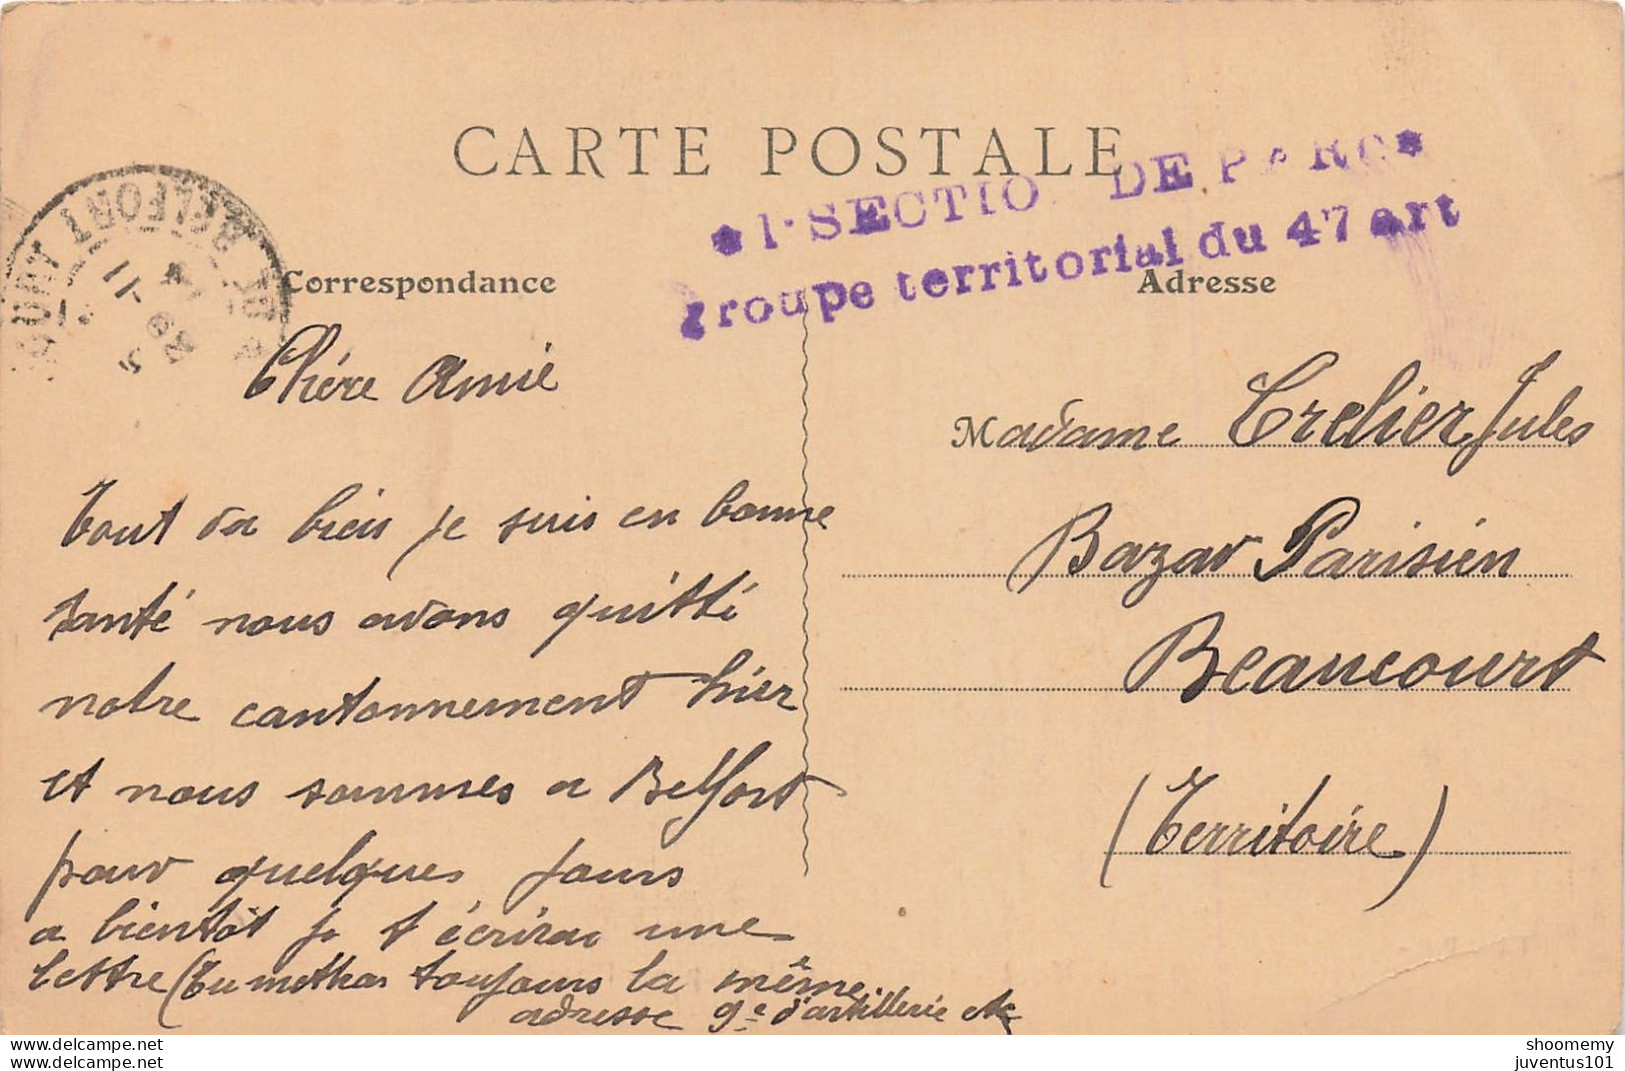 CARTE POSTALE
*1e SECTIO DE PARC*
groupe territorial du 47 art
BELFORT
11
Correspondance
Adresse
Chère Amie
Tout va bien je suis en bonne
santé nous avons quitté
notre cantonnement hier
et nous sommes a Belfort
pour quelques jours
a bientôt je t'écrirai une
lettre (Tu mettras toujours la même
adresse 9e d'artillerie etc
Madame Crelier Jules
Bazar Parisien
Beaucourt
(Territoire)
delcampe.net
delcampe.net
shoomemy
juventus101